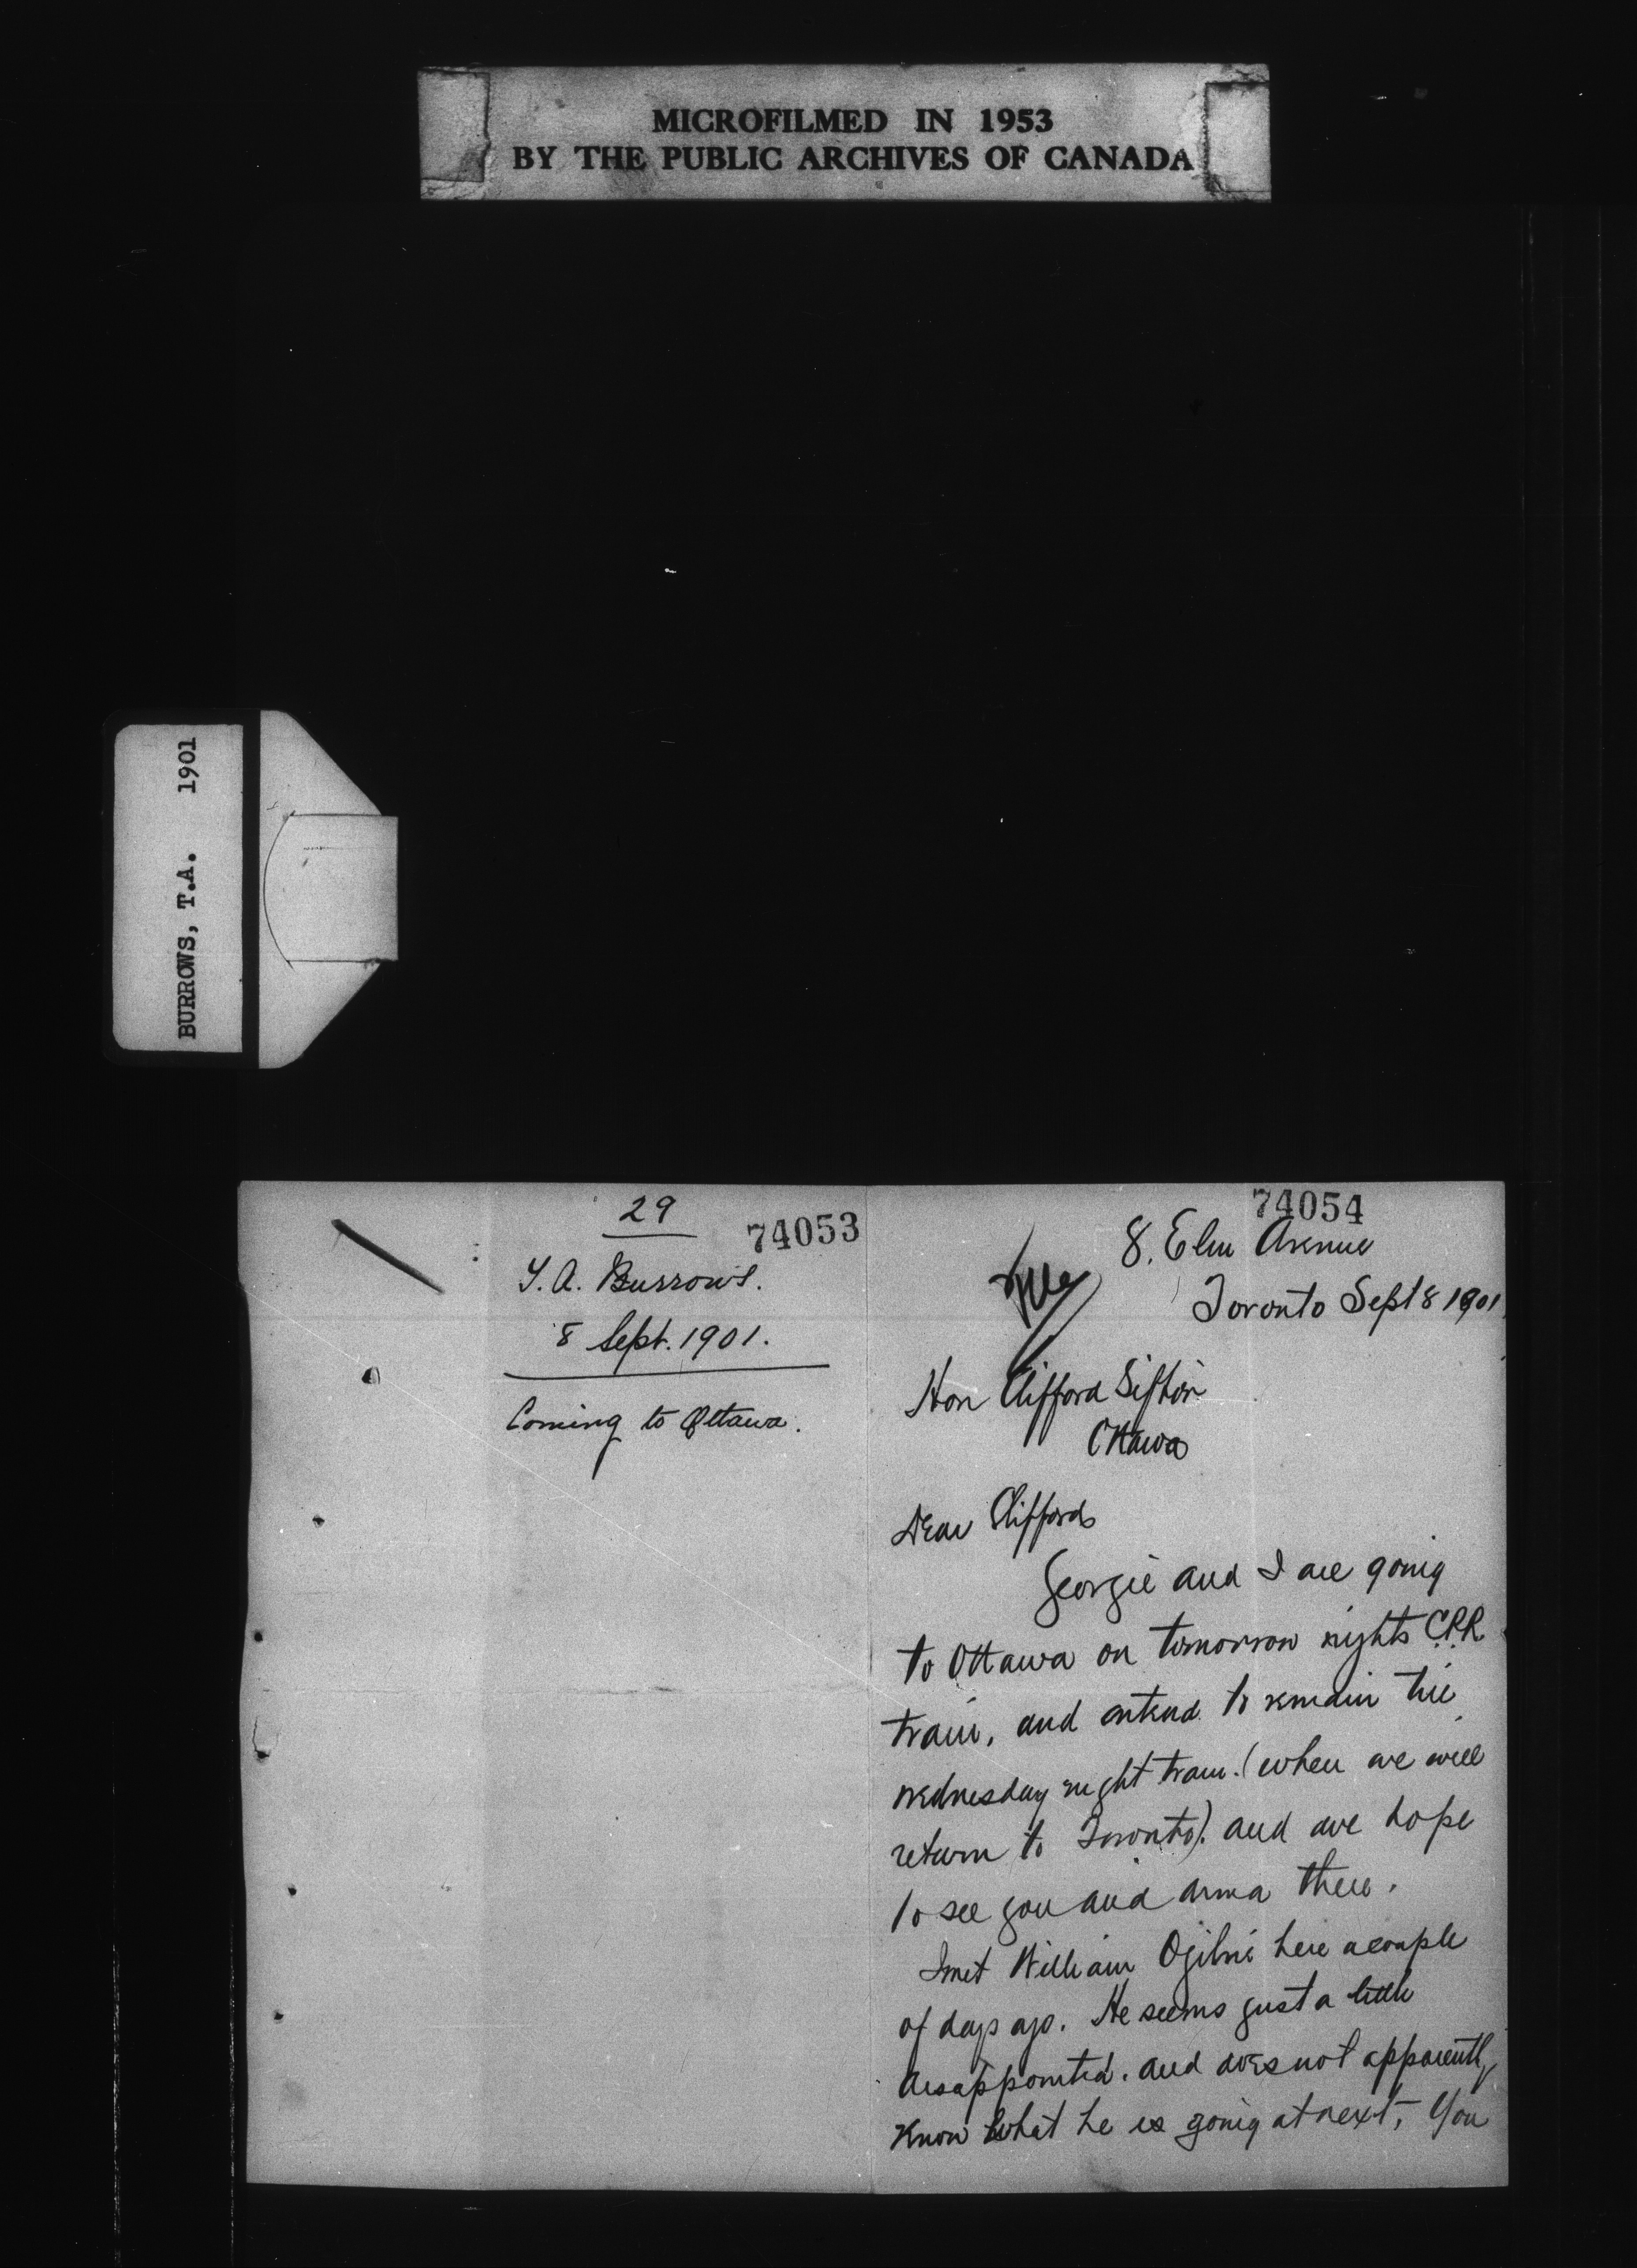 MICROFILMED IN 1953
BY THE PUBLIC ARCHIVES OF CANADA
BURROWS, T.A. 1901
29
74053
T. A. Burrows.
8 Sept. 1901.
Coming to Ottawa.
74054
8. Elm Avenue
Toronto Sept 8 1901
file
Hon Clifford Sifton
Ottawa
Dear Clifford
Georgie and I are going
to Ottawa on tomorrow nights C.P.R.
train, and intend to remain till
Wednesday night train. (when we will
return to Toronto). and we hope
to see you and Arma there.
I met William Ogilvie here a couple
of days ago. He seems just a little
disappointed. and does not apparently
know what he is going at next, You